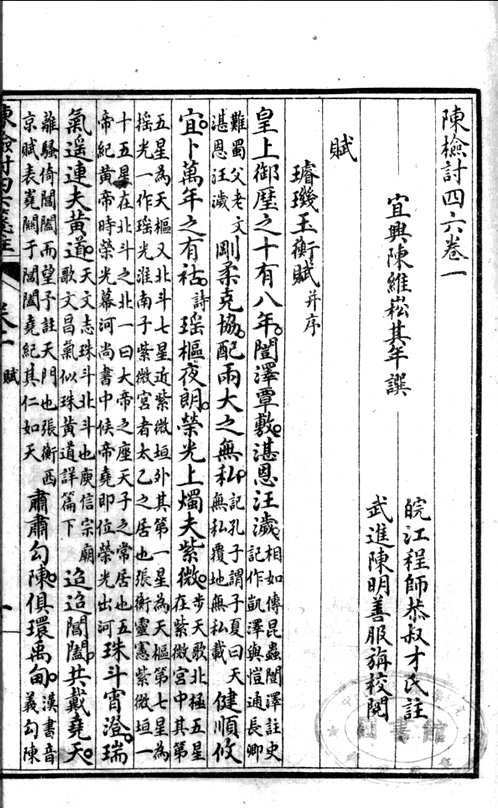 陳檢討四六卷一
宜興陳維崧其年譔
皖江程師恭叔才氏註
武進陳明善服旃校閱
賦
璿璣玉衡賦并序
皇上御歷之十有八年闓澤覃敷湛恩汪濊相如傳昆蟲闓澤註史
記作凱澤與愷通長卿
難蜀父老文
湛恩汪濊剛柔克協配兩大之無私記孔子謂子夏曰天
無私覆地無私載健順攸
宜卜萬年之有祜詩瑶樞夜朗榮光上燭夫紫微步天歌北極五星
在紫微宮中其第
五星為天樞又北斗七星近紫微垣外其第一星為天樞第七星為
摇光一作瑶光淮南子紫微宮者太乙之居也張衡靈憲紫微垣一
十五星在北斗之北一曰大帝之座天子之常居也五
帝紀黄帝時榮光幕河尚書中候帝堯即位榮光出河珠斗宵澄瑞
氣遥連夫黄道天文志珠斗北斗也庾信宗廟
歌文昌氣似珠黄道詳篇下迢迢閶闔共戴堯天
離騷倚閶闔而望予註天門也張衡西
京賦表嶤闕于閶闔堯紀其仁如天肅肅勾陳俱環禹甸漢書音
義勾陳
陳檢討四六
卷一
賦
一